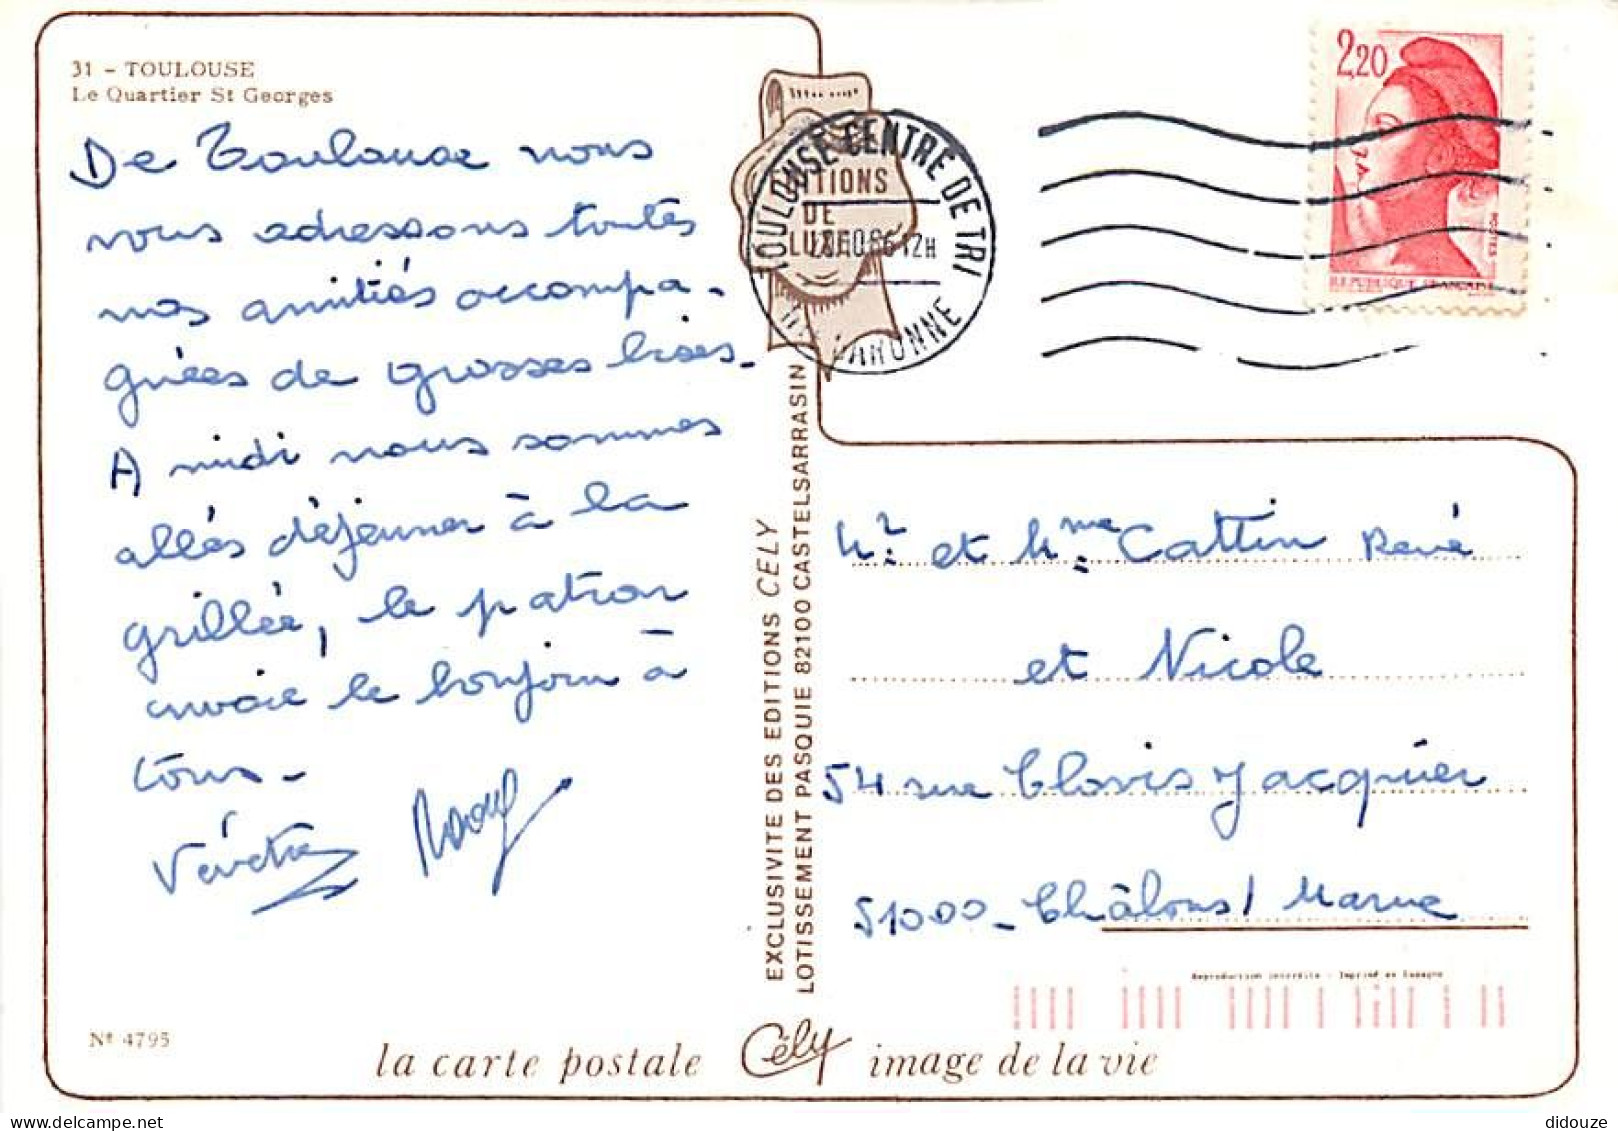 31 - TOULOUSE
Le Quartier St Georges
De Toulouse nous
vous adressons toutes
nos amitiés accompa-
gnées de grosses bises.
A midi nous sommes
allés déjeuner à la
grillée, le patron
envoie le bonjour à
tous -
Raoul
Nº 4795
EXCLUSIVITE DES EDITIONS CELY
LOTISSEMENT PASQUIE 82100 CASTELSARRASIN
TOULOUSE CENTRE DE TRI
12H
GARONNE
DE
LUXE
2,20
POSTES
REPUBLIQUE FRANÇAISE
Mr. et Mme Cattin René
et Nicole
54 rue Clovis Jacquier
51000 - Châlons / Marne
Reproduction interdite - Imprimé en Espagne
la carte postale Cély image de la vie
didouze @ delcampe.net